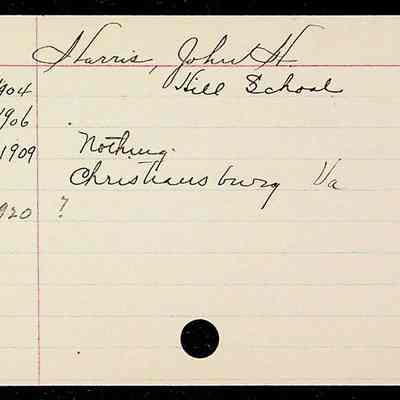 Harris, John H.
1904 Hill School
1906 .
1909 Nothing.
Christiansburg Va
1920 ?